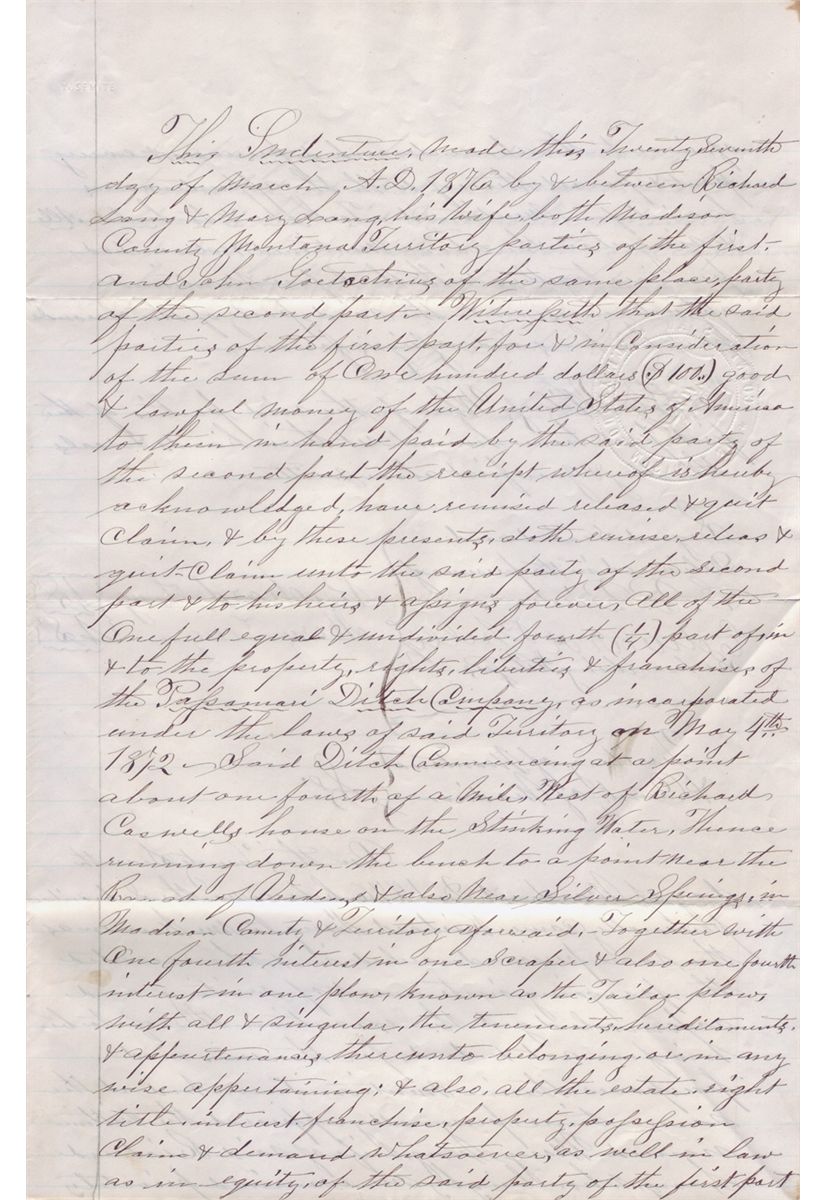 This Indenture, Made this Twenty Seventh
day of March A.D. 1876 by & between Richard
Lang & Mary Lang, his Wife, both Madison
County Montana Territory parties of the first
and John Goetschius of the same place, party
of the second part. Witnesseth that the said
parties of the first part, for & in Consideration
of the sum of One hundred dollars ($100.) good
& lawful money of the United States of America
to them in hand paid by the said party of
the second part the receipt whereof is hereby
acknowledged, have remised released & quit
Claim, & by these presents, doth remise, releas &
quit-Claim unto the said party of the second
part & to his heirs & assigns forever, All of the
One full equal & undivided fourth (1/4) part of, in
& to the property, rights, liberties & franchises of
the Passamari Ditch Company, as incorporated
under the laws of said Territory on May 4th
1872 - Said Ditch Commencing at a point
about one fourth of a Mile, West of Richard
Caswells house on the Stinking Water, Thence
running down the bench to a point near the
Ranch of & also Near Silver Springs, in
Madison County & Territory aforesaid, - Together with
One fourth interest in one Scraper & also one fourth
interest in one plow, known as the Tailor plow,
with all & singular, the tenements, hereditaments,
& appurtenances thereunto belonging or in any
wise appertaining; & also, all the estate, right
title, interest franchise, property, possession
Claim & demand Whatsoever, as well in law
as in equity, of the said party of the first part